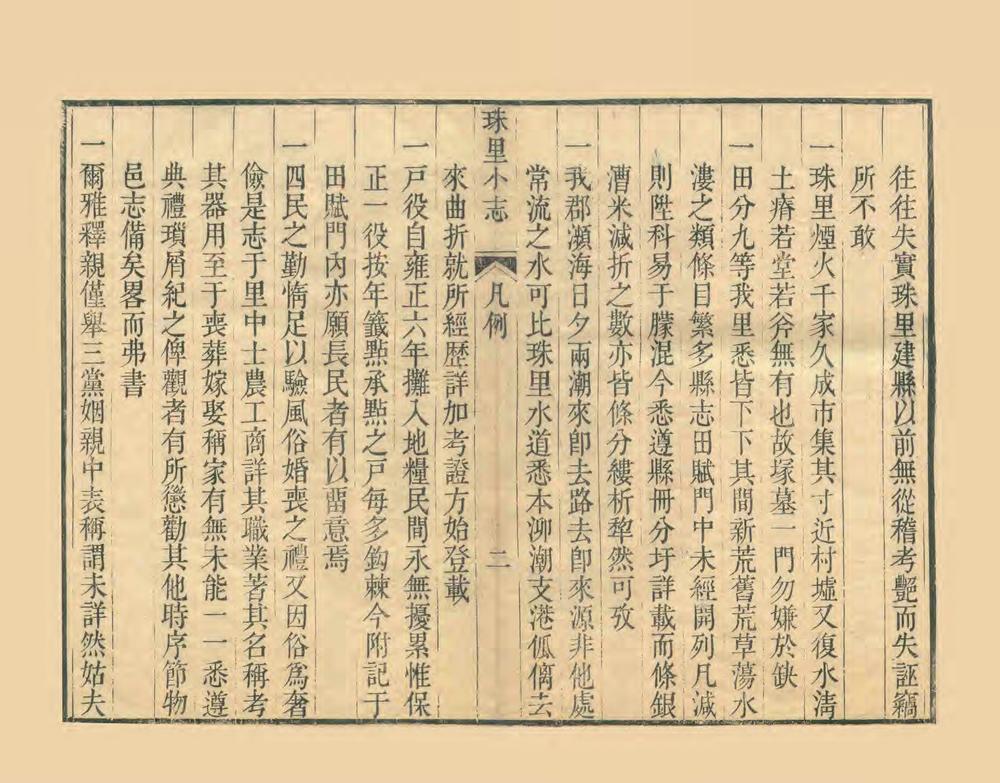 往往失實珠里建縣以前無從稽考艷而失誣竊
所不敢
一珠里煙火千家久成市集其寸近村墟又復水淸
土瘠若堂若斧無有也故塚墓一門勿嫌於缺
一田分九等我里悉皆下下其間新荒舊荒草蕩水
漊之類條目繁多縣志田賦門中未經開列凡減
則陞科易于朦混今悉遵縣冊分圩詳載而條銀
漕米減折之數亦皆條分縷析犂然可攷
一我郡瀕海日夕兩潮來卽去路去卽來源非他處
常流之水可比珠里水道悉本泖潮支港侃僪去
來曲折就所經歷詳加考證方始登載
珠里小志
凡例
二
一戸役自雍正六年攤入地糧民間永無擾累惟保
正一役按年籤點承點之戸每多鈎棘今附記于
田賦門內亦願長民者有以畱意焉
一四民之勤惰足以驗風俗婚喪之禮又因俗爲奢
儉是志于里中士農工商詳其職業著其名稱考
其器用至于喪葬嫁娶稱家有無未能一一悉遵
典禮瑣屑紀之俾觀者有所懲勸其他時序節物
邑志備矣畧而弗書
一爾雅釋親僅舉三黨姻親中表稱謂未詳然姑夫